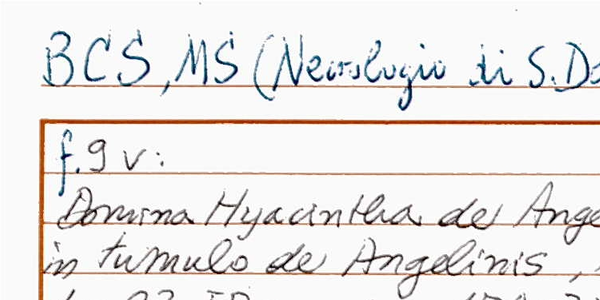 BCS, MS (Necrologio di S. Do
f. 9 v:
Domina Hyacintha de Ange
in tumulo de Angelinis,